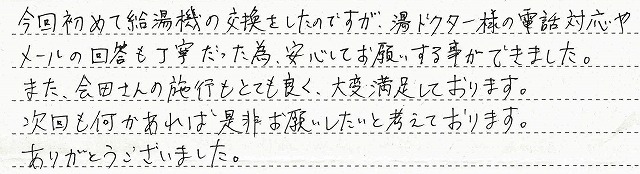 今回初めて給湯機の交換をしたのですが、湯ドクター様の電話対応や
メールの回答も丁寧だった為、安心してお願いする事ができました。
また、会田さんの施行もとても良く、大変満足しております。
次回も何かあれば是非お願いしたいと考えております。
ありがとうございました。